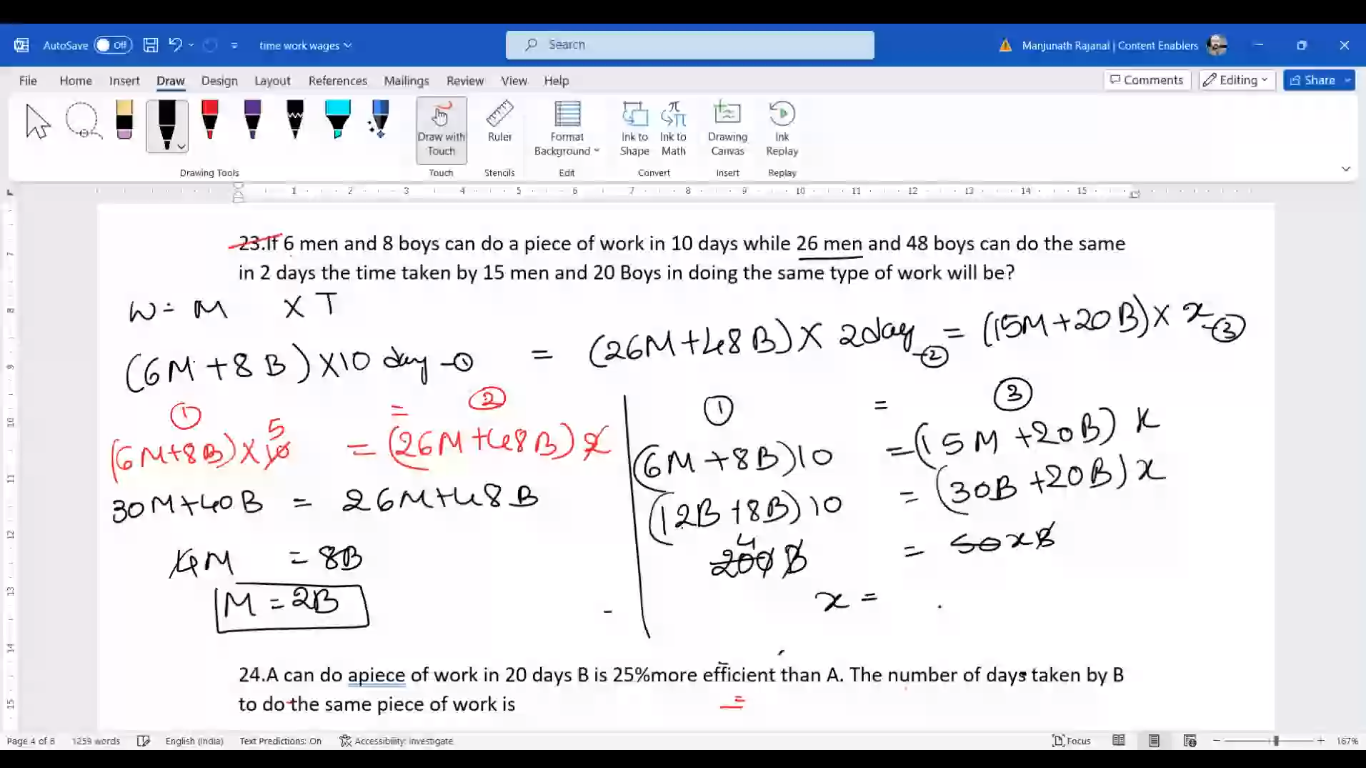 AutoSave Off time work wages Search Manjunath Rajanal | Content Enablers
File Home Insert Draw Design Layout References Mailings Review View Help Comments Editing Share
Draw with Touch Ruler Format Background Ink to Shape Ink to Math Drawing Canvas Ink Replay
Drawing Tools Touch Stencils Edit Convert Insert Replay
1 2 3 4 5 6 7 8 9 10 11 12 13 14 15
23.If 6 men and 8 boys can do a piece of work in 10 days while 26 men and 48 boys can do the same
in 2 days the time taken by 15 men and 20 Boys in doing the same type of work will be?
W = M X T
(6M + 8B) × 10 day - ① = (26M + 48B) × 2day - ② = (15M + 20B) × x - ③
① = ②
(6M+8B) × 10 5 = (26M+48B) 2
30M+40B = 26M+48B
4M = 8B
M = 2B
① = ③
(6M + 8B)10 = (15M + 20B) x
(12B + 8B)10 = (30B + 20B) x
4
200 B = 50xB
x =
24.A can do apiece of work in 20 days B is 25%more efficient than A. The number of days taken by B
to do the same piece of work is
Page 4 of 8 1259 words English (India) Text Predictions: On Accessibility: Investigate Focus 167%